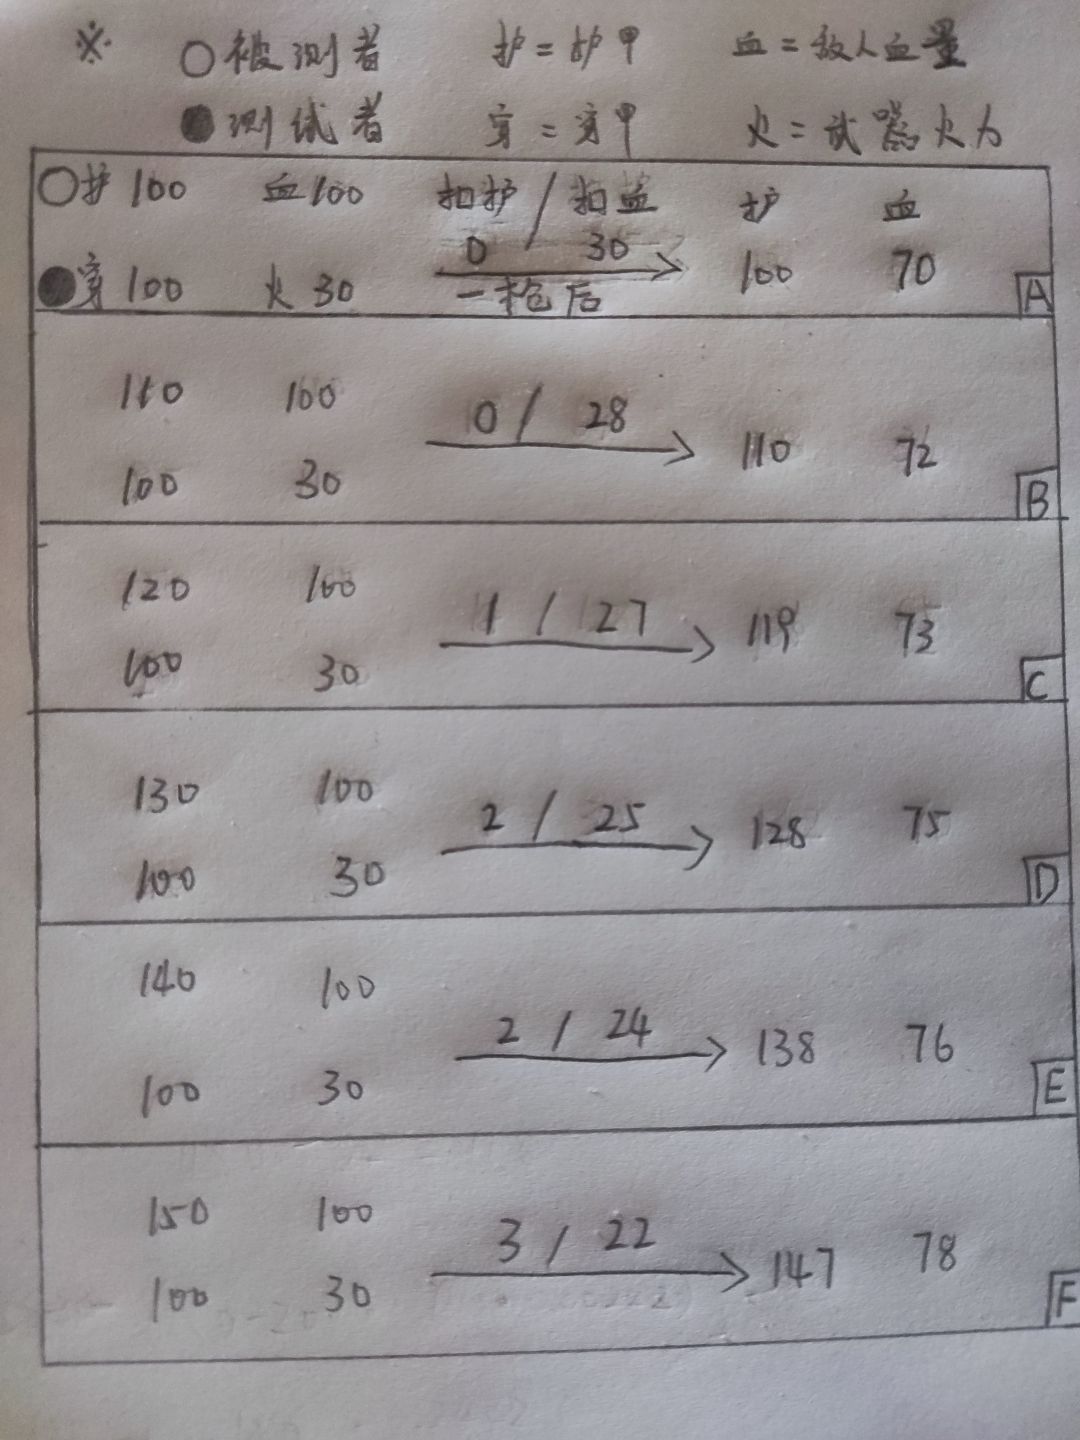 ※ ○被测者 护=护甲 血=敌人血量
●测试者 穿=穿甲 火=武器火力
○护 100 血100 扣护/扣血 护 血
0 30
●穿 100 火 30 一枪后 100 70 A
110 100 0/28
100 30 110 72 B
120 100 1/27 119 73
100 30 C
130 100 2/25 128 75
100 30 D
140 100 2/24 138 76
100 30 E
150 100 3/22 147 78
100 30 F